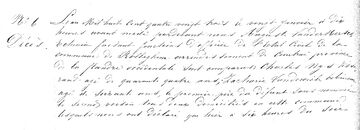 N° 6
Décès.
L'an mil huit cent quatre vingt trois le vingt janvier à dix
heures avant midi pardevant nous Auguste Vanden
échevin faisant fonctions d'officier de l'état Civil de la
commune de Rolleghem arrondissement de Courtrai province
de la flandre occidentale sont comparus Charles
rand agé de quarante quatre ans,
agé de soixante ans, le premier père du défunt sans
le second voisin tous deux domiciliés en cette commune
lesquels nous ont déclaré que hier à six heures du soir